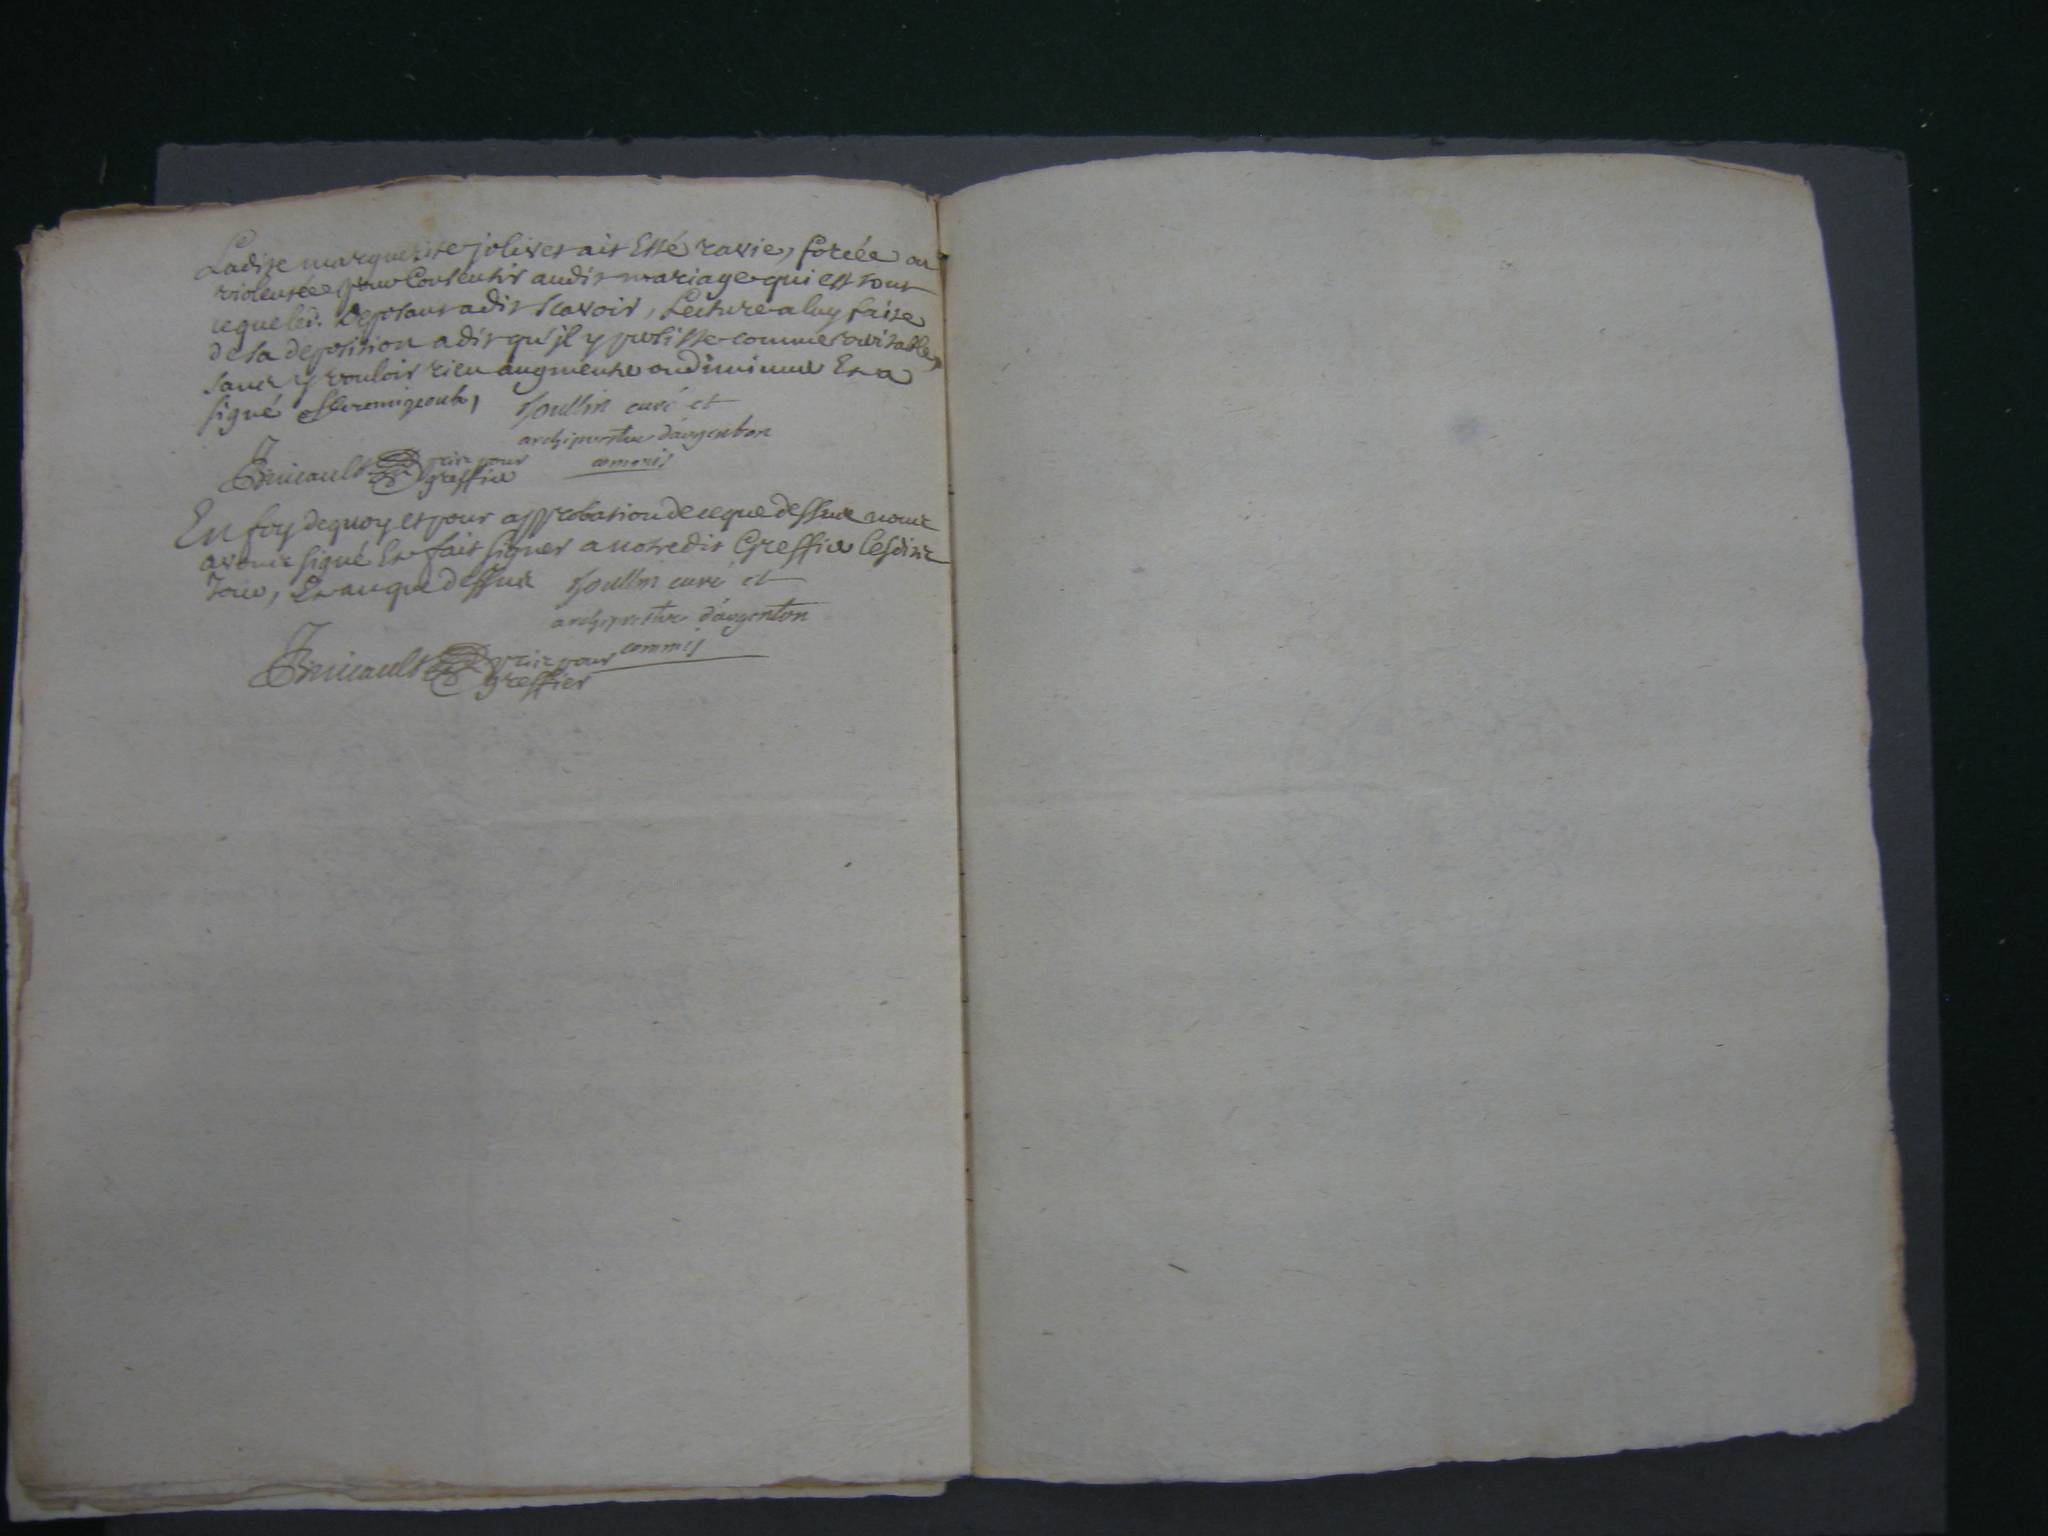 Ladite marguerite jolivet ait Esté ravie, forcée ou
violentée pour Consentir audit mariage qui est tout
ce que led. Deposant a dit scavoir, Lecture a luy faite
de sa deposition a dit qu'jl y persiste comme veritable,
sans y vouloir rien augmenter ou diminuer Et a
signé
joullin curé et
archiprestre d'argenton
commis
Bruault pris pour
greffier
En foy de quoy et pour approbation de ce que dessus nous
avons signé Et fait signer a notredit Greffier lesdits
Jour, Et an que dessus joullin curé et
archiprestre d'argenton
commis
pris pour
greffier